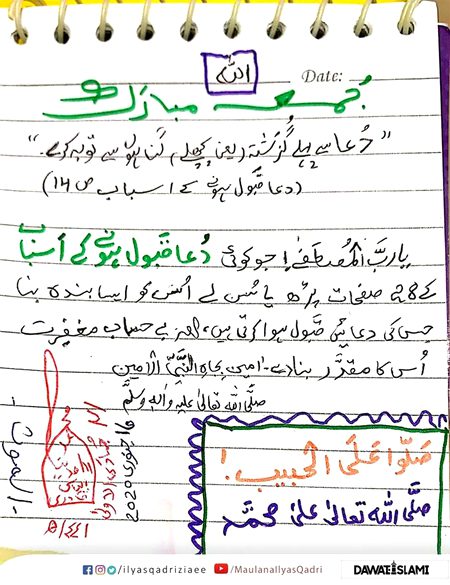 اللہ
Date:
جُمعہ مبارَک
"دُعا سے پہلے گُزَشتہ (یعنی پچھلے) گناہوں سے توبہ کرے۔"
(دعا قَبول ہونے کے اسباب ص 14)
یاربَّ المُصطَفٰے! جو کوئی دُعا قَبول ہونے کے اَسباب
کے 28 صفحات پڑھ یا سُن لے اُس کو ایسا بندہ بنا
جس کی دعائیں قَبول ہوا کرتی ہیں، اور بے حساب مغفِرت
اُس کا مقدَّر بنا دے۔ اٰمین بجاہِ النَّبِیِّ الْاَمین
صلَّی اللہ تعالیٰ علیہ واٰلہٖ وسلَّم
صَلُّوا عَلَی الْحَبِیب!
صلَّی اللہ تعالیٰ علیٰ محمَّد
جُمادی الاولیٰ
۱۴۴۱ھ
16 جنوری 2020
الموت
/ilyasqadriziaee
/MaulanaIlyasQadri
DAWATEISLAMI